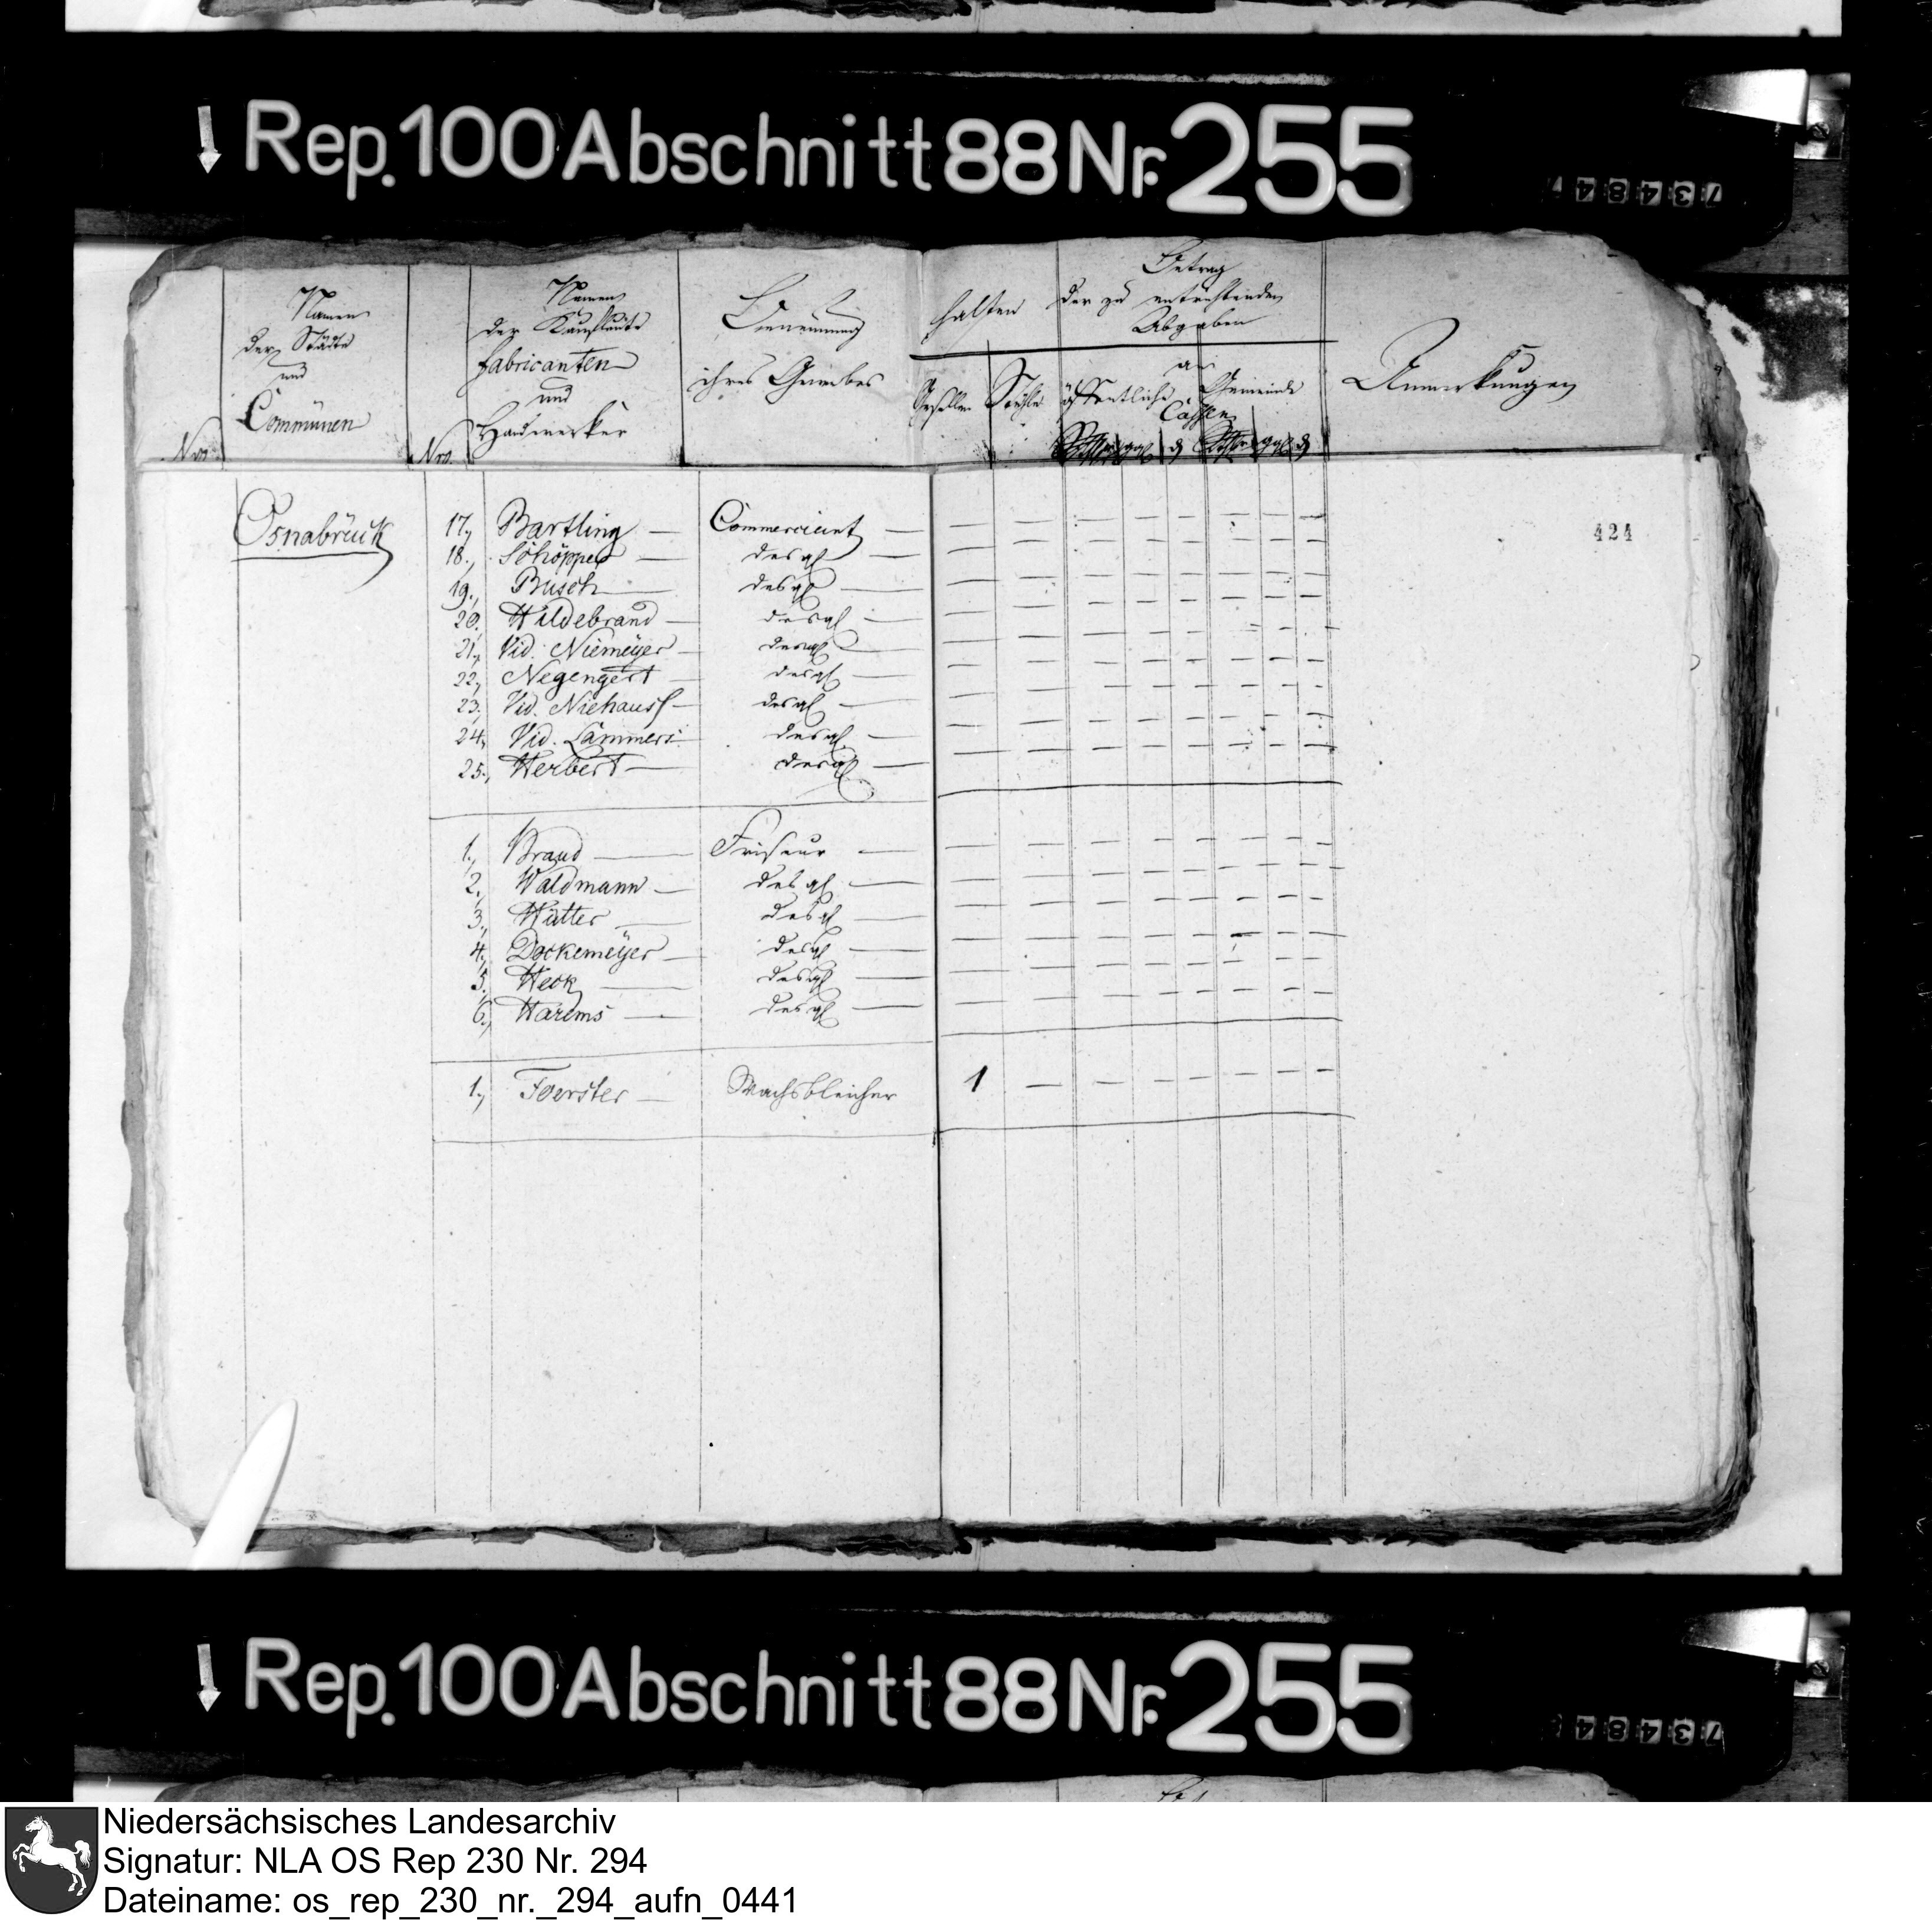 Rep. 100 Abschnitt 88 Nr. 255
73484
Nro
Namen
der Städte
und
Communen
Nro.
Namen
der Kaufleute
Fabricanten
und
Handwerker
Benennung
ihres Gewerbes
halten
Gesellen
Stühle
Betrag
der zu entrichtenden
Abgaben
an
öffentliche Gemeinde
Cassen
Anmerkungen
424
Osnabrück 17, Bartling — Commerciant — — — — — — — — —
18, Schöpper — desgl — — — — — — — — —
19, Busch — desgl — — — — — — — — —
20, Hildebrand — desgl — — — — — — — — —
21, Vid. Niemeyer — desgl — — — — — — — — —
22, Negengerd — desgl — — — — — — — — —
23, Vid. Niehauss — desgl — — — — — — — — —
24, Vid. Lammers desgl — — — — — — — — —
25, Herbert — desgl — — — — — — — — —
1, Brand — Friseur — — — — — — — — —
2, Waldmann — desgl — — — — — — — — —
3, Hütter — desgl — — — — — — — — —
4, Dockemeyer — desgl — — — — — — — — —
5, Heck — desgl — — — — — — — — —
6, Harems — desgl — — — — — — — — —
1, Foerster — Wachsbleicher 1 — — — — — — —
Rep. 100 Abschnitt 88 Nr. 255
73484
Niedersächsisches Landesarchiv
Signatur: NLA OS Rep 230 Nr. 294
Dateiname: os_rep_230_nr._294_aufn_0441